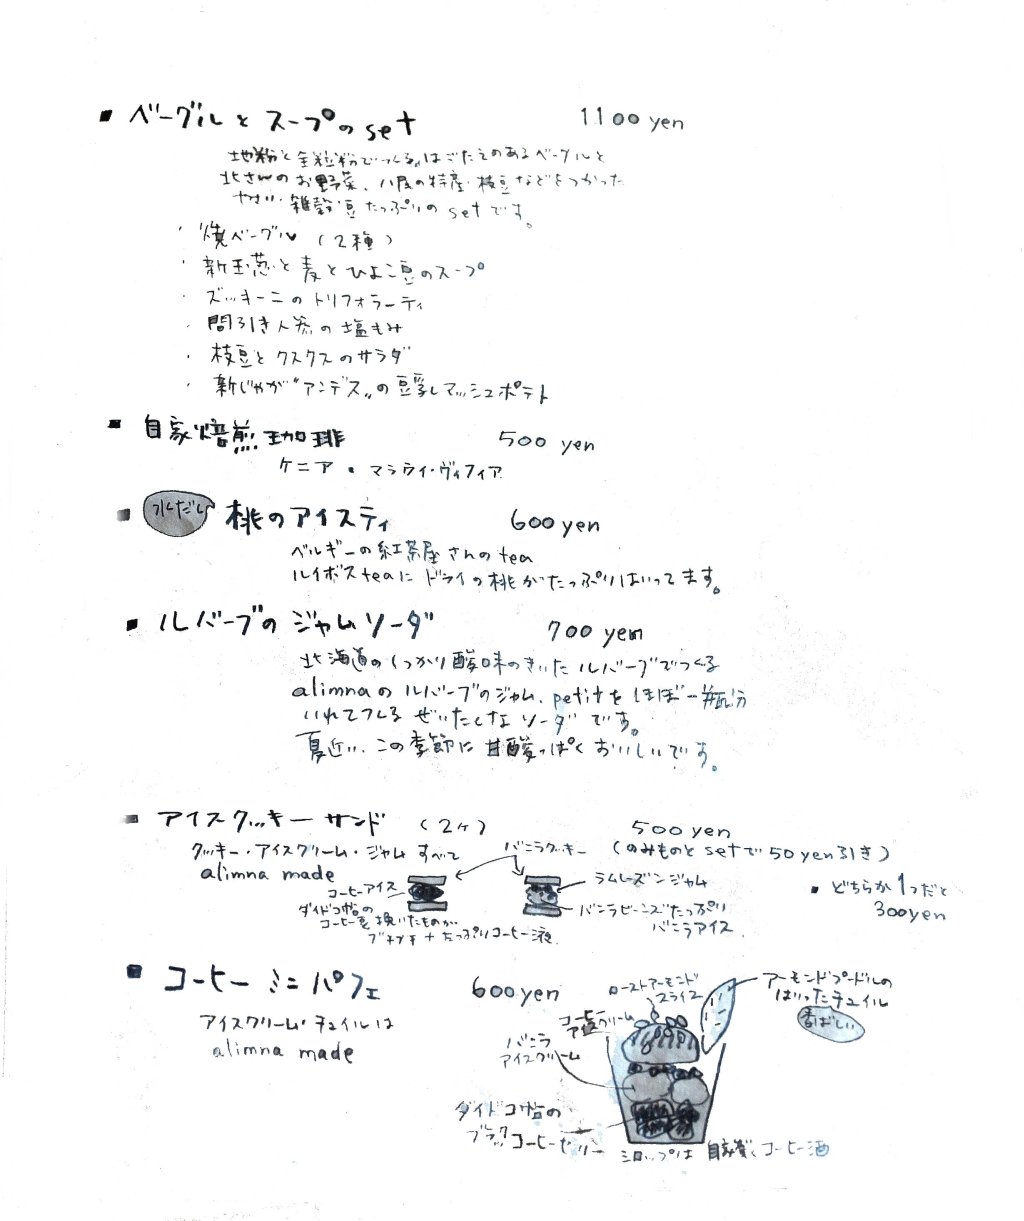 ベーグルとスープのset 1100 yen
地粉と全粒粉でつくる、はごたえのあるベーグルと
北さんのお野菜、八尾の特産・枝豆などをつかった
やさい・雑穀・豆たっぷりのsetです。
・焼ベーグル (2種)
・新玉葱と麦とひよこ豆のスープ
・ズッキーニのトリフォラーティ
・間引き人参の塩もみ
・枝豆とクスクスのサラダ
・新じゃが"アンデス"の豆乳マッシュポテト
自家焙煎珈琲 500 yen
ケニア・マラウイ・ヴィフィア
水だし 桃のアイスティ 600 yen
ベルギーの紅茶屋さんのtea
ルイボスteaにドライの桃がたっぷりはいってます。
ルバーブのジャムソーダ 700 yen
北海道のしっかり酸味のきいたルバーブでつくる
alimnaのルバーブのジャム、petitをほぼ一瓶分
いれてつくるぜいたくなソーダです。
夏近い、この季節に甘酸っぱくおいしいです。
アイスクッキーサンド (2ヶ) 500 yen
クッキー・アイスクリーム・ジャムすべて
alimna made
(のみものとsetで50yen引き)
・どちらか1つだと
300yen
バニラクッキー
コーヒーアイス
ダイドコ焙の
コーヒー豆挽いたものが
プチプチ+たっぷりコーヒー液
ラムレーズンジャム
バニラビーンズたっぷり
バニラアイス
コーヒーミニパフェ 600yen
アイスクリーム・チュイルは
alimna made
ローストアーモンド
スライス
コーヒー
アイスクリーム
バニラ
アイスクリーム
アーモンドプードルの
はいったチュイル
香ばしい
ダイドコ焙の
ブラックコーヒーゼリー
シロップは自家製コーヒー酒